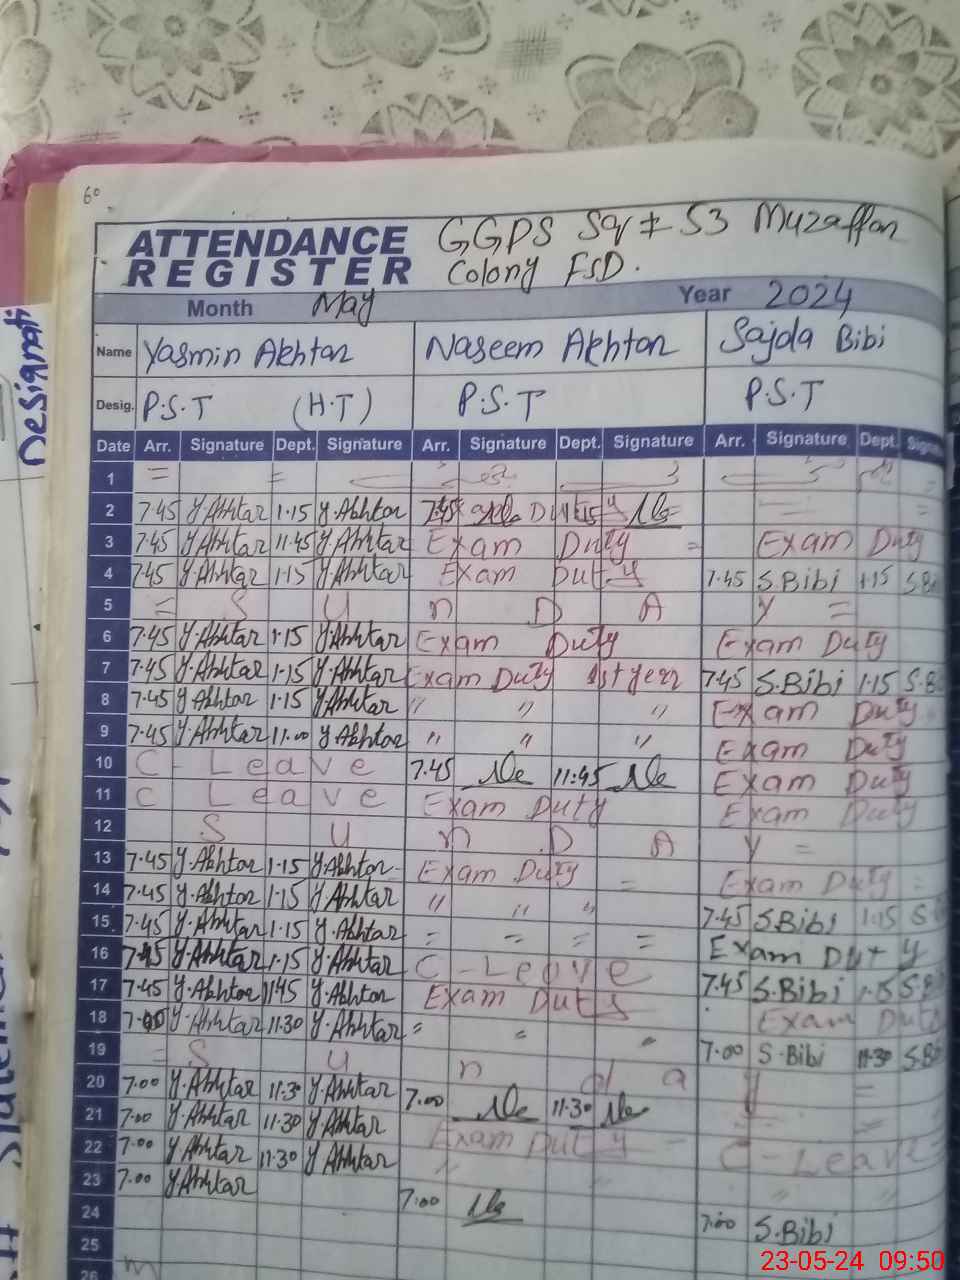 60
ATTENDANCE REGISTER
GGPS Sq # 53 Muzaffar
Colony FSD.
Month May Year 2024
Name Yasmin Akhtar Naseem Akhtar Sajda Bibi
Desig. P.S.T (H.T) P.S.T P.S.T
Date Arr. Signature Dept. Signature Arr. Signature Dept. Signature Arr. Signature Dept.
1 = =
2 7.45 Y.Akhtar 1.15 Y.Akhtar 7.45
3 7.45 Y.Akhtar 11.45 Y.Akhtar Exam Duty = Exam Duty
4 7.45 Y.Akhtar 1.15 Y.Akhtar Exam Duty 7.45 S.Bibi 1.15
5 = S U n D A y =
6 7.45 Y.Akhtar 1.15 Y.Akhtar Exam Duty Exam Duty
7 7.45 Y.Akhtar 1.15 Y.Akhtar Exam Duty 1st year 7.45 S.Bibi 1.15 S.B
8 7.45 Y.Akhtar 1.15 Y.Akhtar " " " Exam Duty
9 7.45 Y.Akhtar 11.00 Y.Akhtar " " " Exam Duty
10 C - Leave 7.45 11:45 Exam Duty
11 C Leave Exam Duty Exam Duty
12 S U n D A y =
13 7.45 Y.Akhtar 1.15 Y.Akhtar Exam Duty Exam Duty =
14 7.45 Y.Akhtar 1.15 Y.Akhtar " " " 7.45 S.Bibi 1.15 S
15 7.45 Y.Akhtar 1.15 Y.Akhtar = = = = Exam Duty
16 7.45 Y.Akhtar 1.15 Y.Akhtar C - Leave 7.45 S.Bibi 1.15 S.B
17 7.45 Y.Akhtar 11.45 Y.Akhtar Exam Duty Exam Duty
18 7.00 Y.Akhtar 11.30 Y.Akhtar = " " 7.00 S.Bibi 11.30 S.B
19 = S U n d a y =
20 7.00 Y.Akhtar 11.30 Y.Akhtar 7.00 11.30
21 7.00 Y.Akhtar 11.30 Y.Akhtar Exam Duty C - Leave
22 7.00 Y.Akhtar 11.30 Y.Akhtar " " "
23 7.00 Y.Akhtar 7.00 7.00 S.Bibi
24
25
26
Designati
23-05-24 09:50